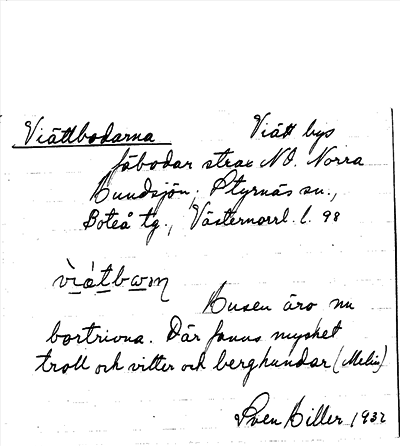 Viättbodarna Viätt bys
fäbodar strax NO. Norra
Bundsjön, Styrnäs sn.,
Boteå tg., Västernorrl. l. 98
Husen äro nu
bortrivna. Där fanns mycket
troll och vitter och berghundar (Melin)
Sven Hiller 1932